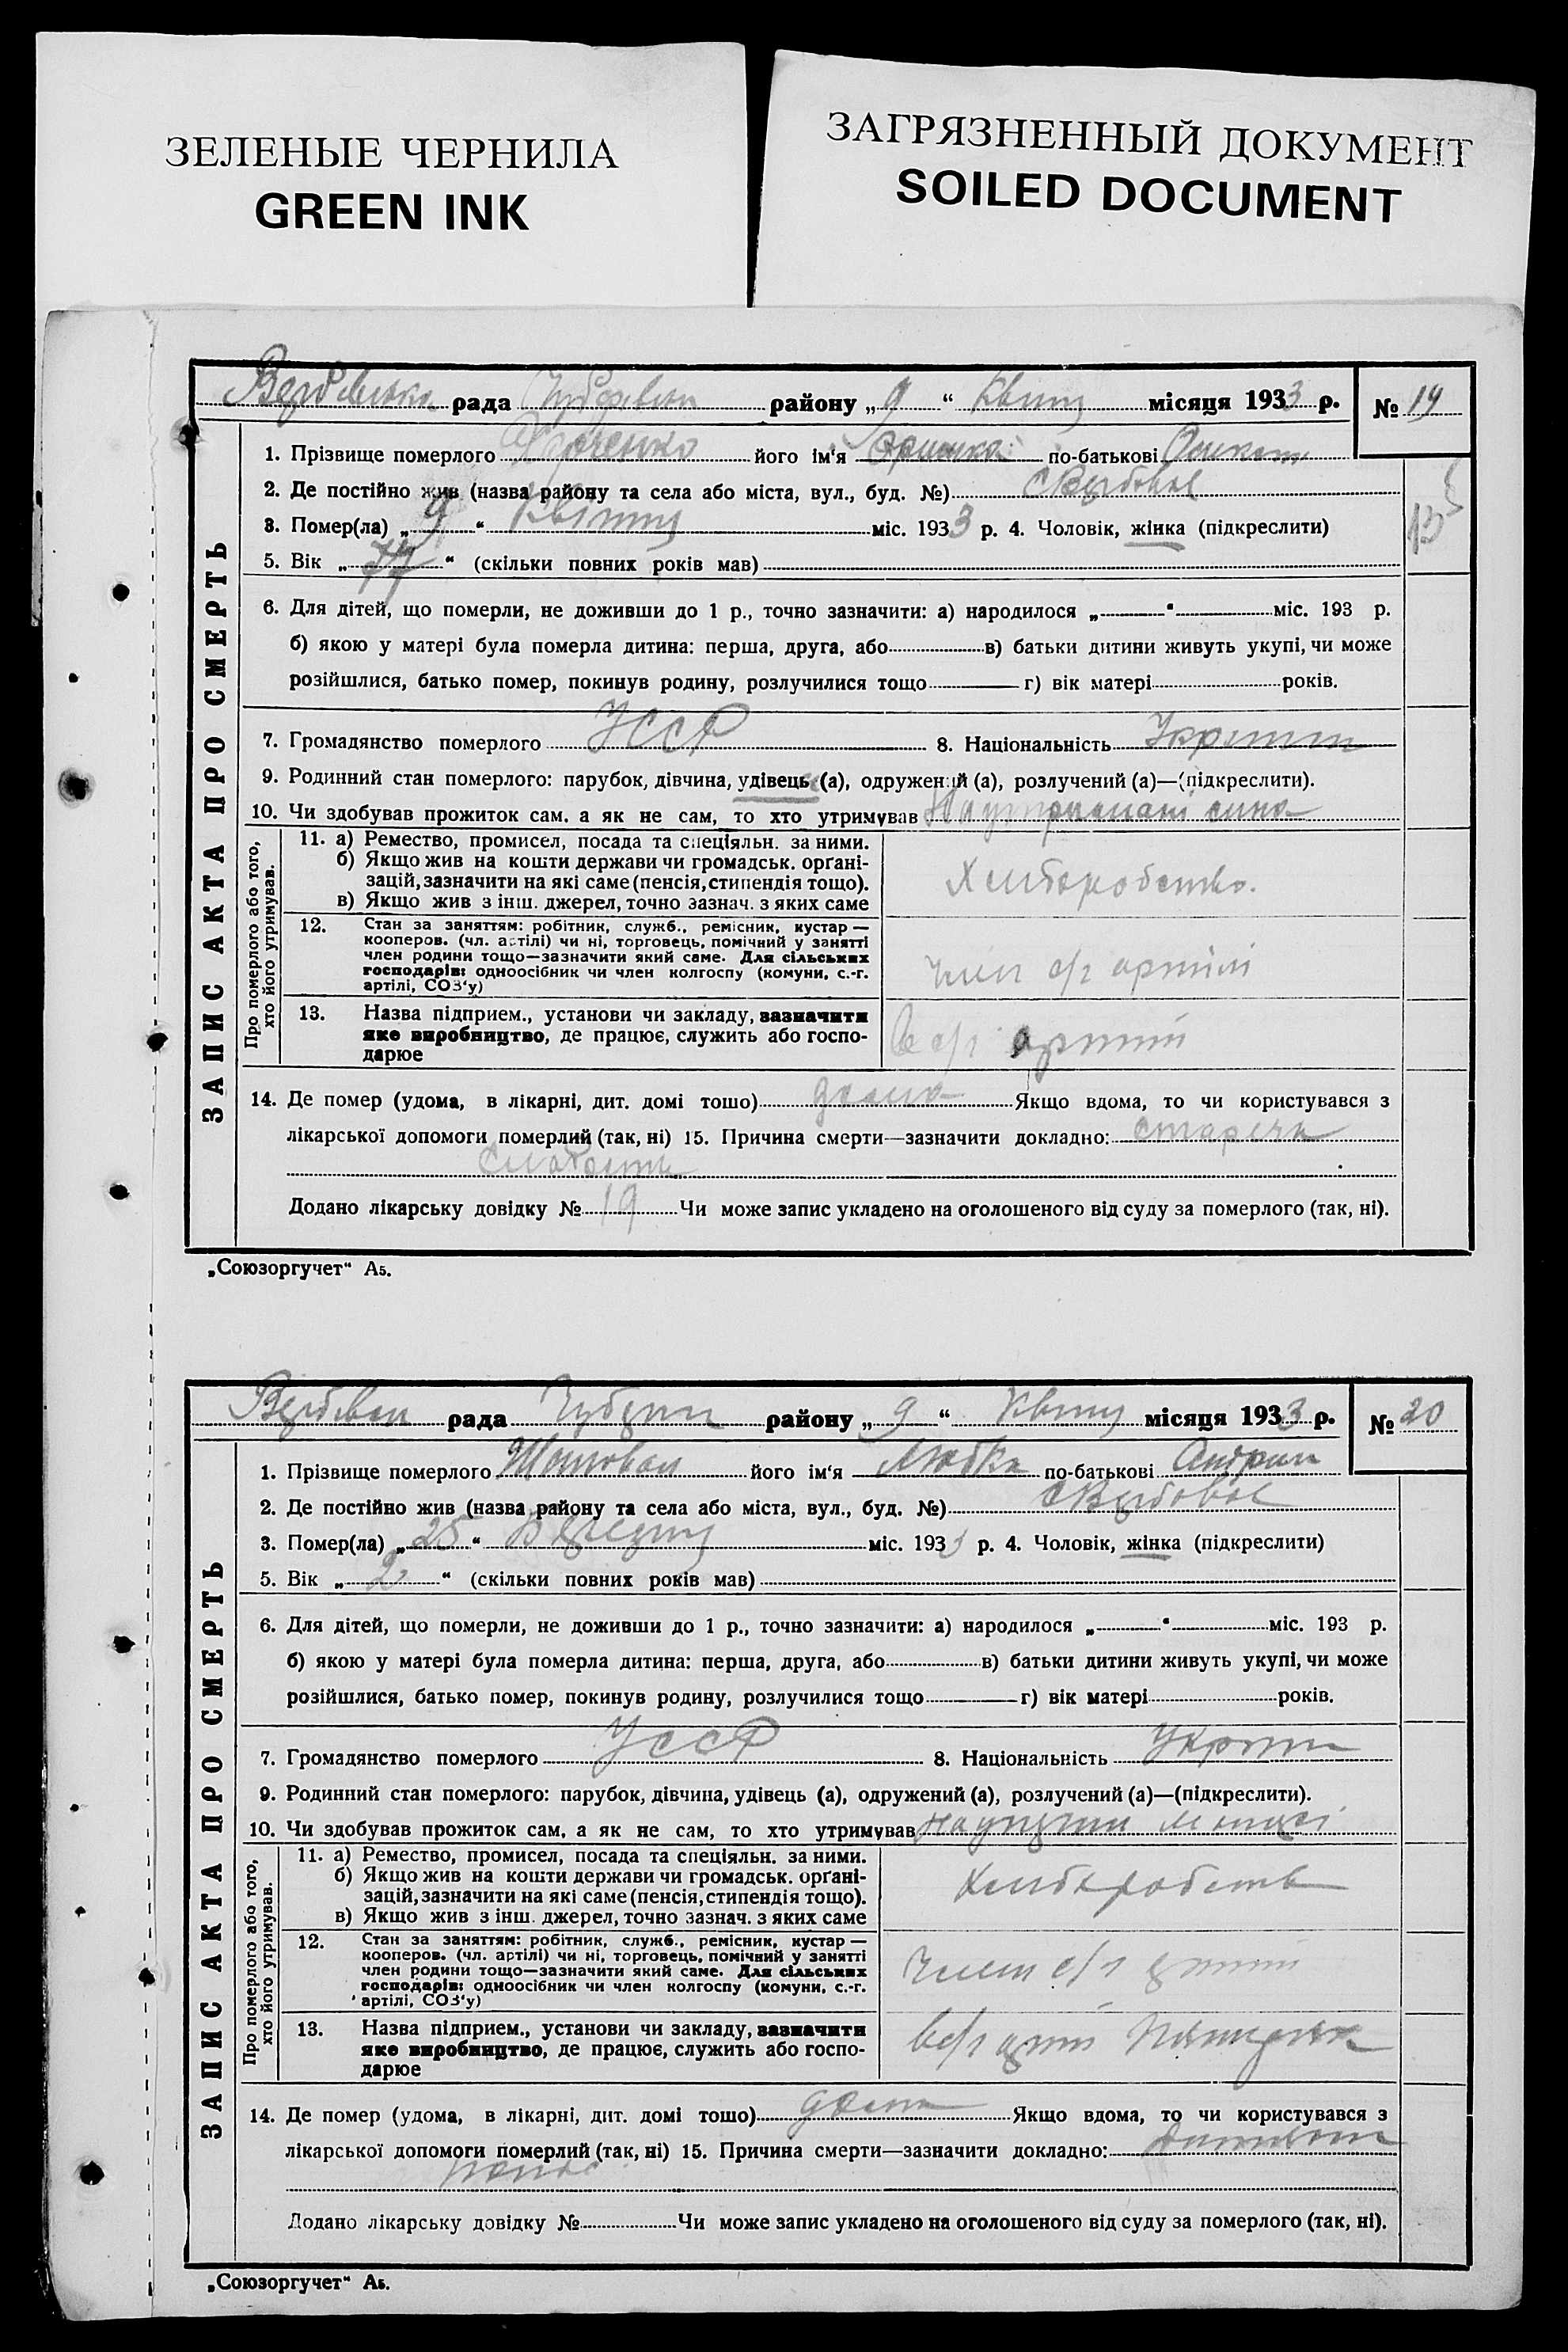 ЗЕЛЕНЫЕ ЧЕРНИЛА
GREEN INK
ЗАГРЯЗНЕННЫЙ ДОКУМЕНТ
SOILED DOCUMENT
рада району „ 9 “ Квітня місяця 1933 р. № 19
ЗАПИС АКТА ПРО СМЕРТЬ
1. Прізвище померлого його ім'я по-батькові
2. Де постійно жив (назва району та села або міста, вул., буд. №) с Вербовое
3. Помер(ла) „ 9 “ Квітня міс. 1933 р. 4. Чоловік, жінка (підкреслити)
5. Вік „ 77 “ (скільки повних років мав)
6. Для дітей, що померли, не доживши до 1 р., точно зазначити: а) народилося „ “ міс. 193 р.
б) якою у матері була померла дитина: перша, друга, або в) батьки дитини живуть укупі, чи може
розійшлися, батько помер, покинув родину, розлучилися тощо г) вік матері років.
7. Громадянство померлого УССР 8. Національність
9. Родинний стан померлого: парубок, дівчина, удівець (а), одружений (а), розлучений (а)—(підкреслити).
10. Чи здобував прожиток сам, а як не сам, то хто утримував На утримані сина
Про померлого або того, хто його утримував.
11. а) Ремество, промисел, посада та спеціяльн. за ними.
б) Якщо жив на кошти держави чи громадськ. орґані-
зацій, зазначити на які саме (пенсія, стипендія тощо).
в) Якщо жив з інш. джерел, точно зазнач. з яких саме
Хліборобство.
12. Стан за заняттям: робітник, служб., ремісник, кустар —
кооперов. (чл. артілі) чи ні, торговець, помічний у занятті
член родини тощо—зазначити який саме. Для сільських
господарів: одноосібник чи член колгоспу (комуни, с.-г.
артілі, СОЗ'у)
член с/г артілі
13. Назва підприєм., установи чи закладу, зазначити
яке виробництво, де працює, служить або госпо-
дарює
В с/г артілі
14. Де помер (удома, в лікарні, дит. домі тошо) дома Якщо вдома, то чи користувався з
лікарської допомоги померлий (так, ні) 15. Причина смерти—зазначити докладно: стареча
слабость
Додано лікарську довідку № 19 Чи може запис укладено на оголошеного від суду за померлого (так, ні).
„Союзоргучет“ А5.
рада району „ 9 “ Квітня місяця 1933 р. № 20
ЗАПИС АКТА ПРО СМЕРТЬ
1. Прізвище померлого його ім'я Любка по-батькові
2. Де постійно жив (назва району та села або міста, вул., буд. №) с Вербовое
3. Помер(ла) „ 25 “ Березня міс. 1933 р. 4. Чоловік, жінка (підкреслити)
5. Вік „ 2 “ (скільки повних років мав)
6. Для дітей, що померли, не доживши до 1 р., точно зазначити: а) народилося „ “ міс. 193 р.
б) якою у матері була померла дитина: перша, друга, або в) батьки дитини живуть укупі, чи може
розійшлися, батько помер, покинув родину, розлучилися тощо г) вік матері років.
7. Громадянство померлого УССР 8. Національність
9. Родинний стан померлого: парубок, дівчина, удівець (а), одружений (а), розлучений (а)—(підкреслити).
10. Чи здобував прожиток сам, а як не сам, то хто утримував
Про померлого або того, хто його утримував.
11. а) Ремество, промисел, посада та спеціяльн. за ними.
б) Якщо жив на кошти держави чи громадськ. орґані-
зацій, зазначити на які саме (пенсія, стипендія тощо).
в) Якщо жив з інш. джерел, точно зазнач. з яких саме
12. Стан за заняттям: робітник, служб., ремісник, кустар —
кооперов. (чл. артілі) чи ні, торговець, помічний у занятті
член родини тощо—зазначити який саме. Для сільських
господарів: одноосібник чи член колгоспу (комуни, с.-г.
артілі, СОЗ'у)
член с/г артілі
13. Назва підприєм., установи чи закладу, зазначити
яке виробництво, де працює, служить або госпо-
дарює
в с/г
14. Де помер (удома, в лікарні, дит. домі тошо) дома Якщо вдома, то чи користувався з
лікарської допомоги померлий (так, ні) 15. Причина смерти—зазначити докладно:
Додано лікарську довідку № Чи може запис укладено на оголошеного від суду за померлого (так, ні).
„Союзоргучет“ А5.